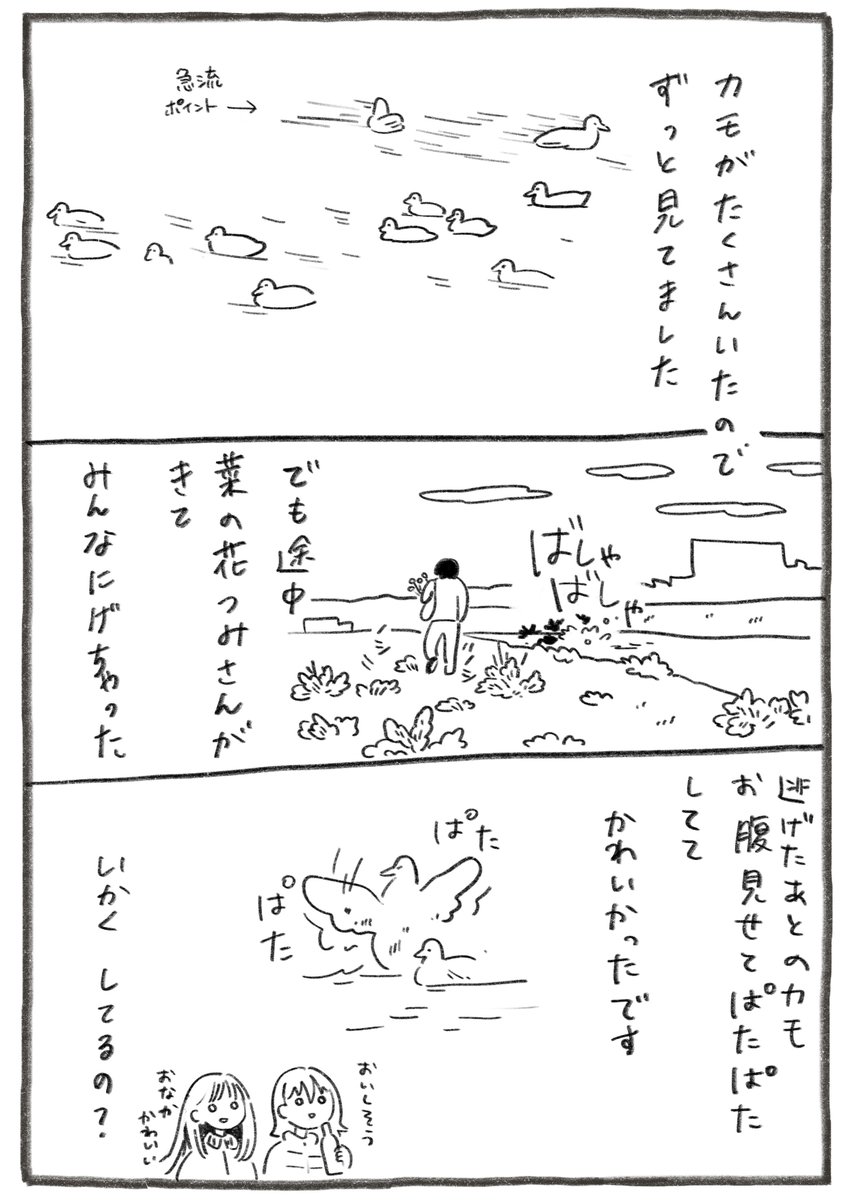 カモがたくさんいたので
ずっと見てました
急流
ポイント→
でも途中
菜の花つみさんが
きて
みんなにげちゃった
ばしゃ
ばしゃ
逃げたあとのカモ
お腹見せてぱたぱた
してて
かわいかったです
ぱた
ぱた
いかくしてるの?
おいしそう
おなか
かわいい